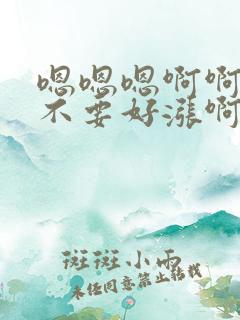 嗯嗯嗯啊啊
不要好涨啊
斑斑小雨
未经同意禁止转载